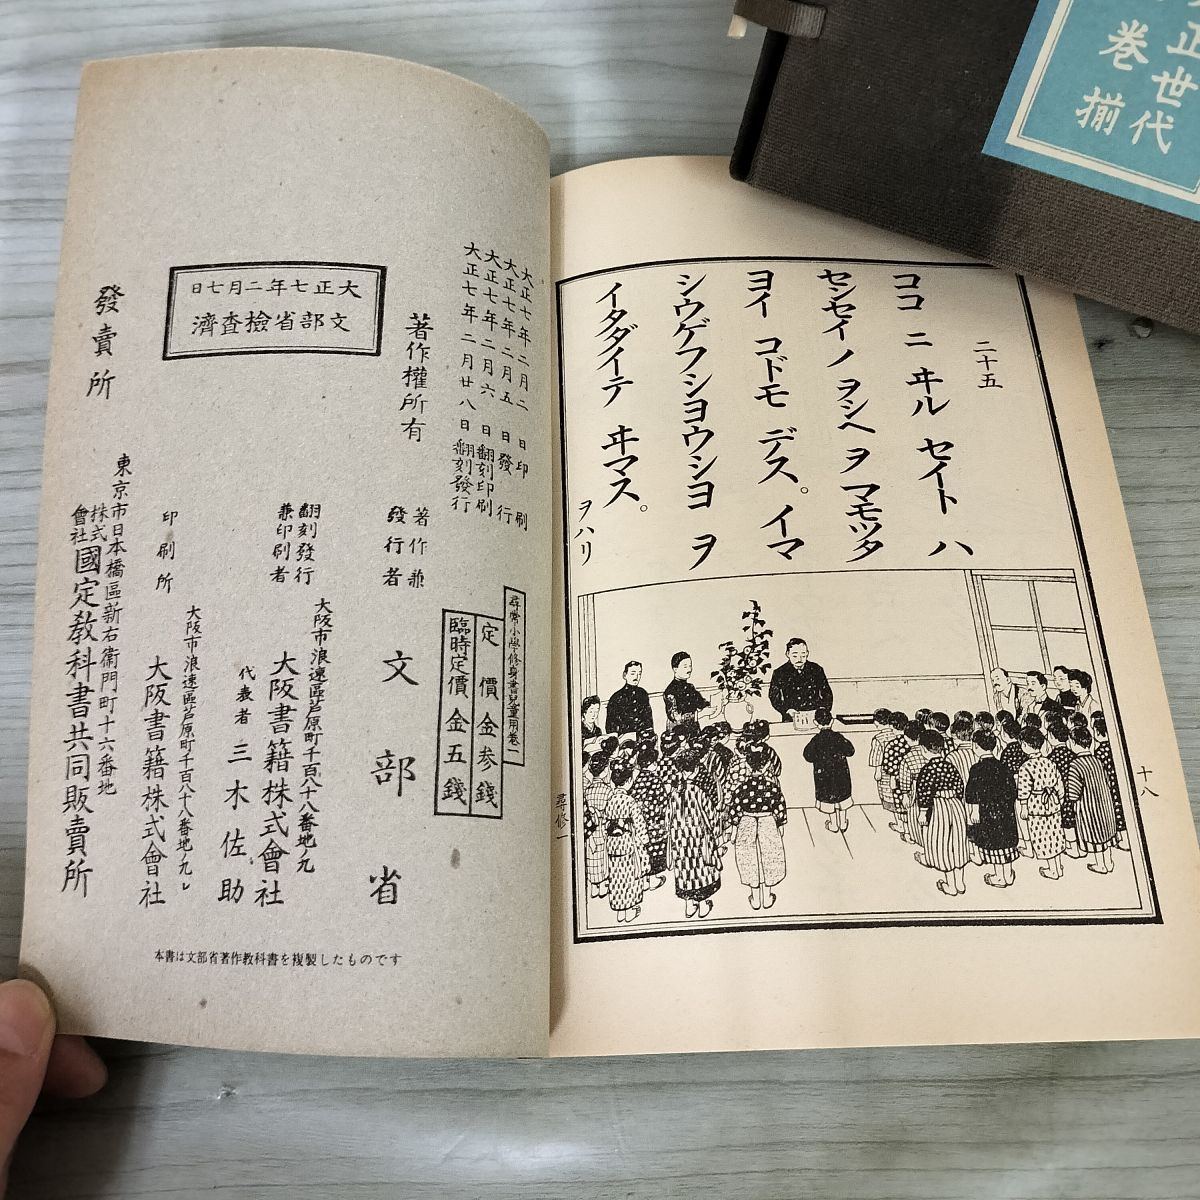 正世代
巻揃
二十五
ココ ニ ヰル セイト ハ
センセイ ノ ヲシヘ ヲ マモツタ
ヨイ コドモ デス。イマ
シウゲフシヨウシヨ ヲ
イタダイテ ヰマス。
ヲハリ
十八
尋修一
大正七年二月二日印刷
大正七年二月五日發行
大正七年二月六日翻刻印刷
大正七年二月廿八日翻刻發行
尋常小學修身書兒童用卷一
定價金参錢
臨時定價金五錢
著作權所有
著作兼
發行者
文部省
大正七年二月七日
文部省檢査濟
翻刻發行
兼印刷者
大阪市浪速區芦原町千百八十八番地ノ九
大阪書籍株式會社
代表者 三木佐助
印刷所
大阪市浪速區芦原町千百八十八番地ノ九
大阪書籍株式會社
發賣所
東京市日本橋區新右衛門町十六番地
株式會社國定教科書共同販賣所
本書は文部省著作教科書を複製したものです